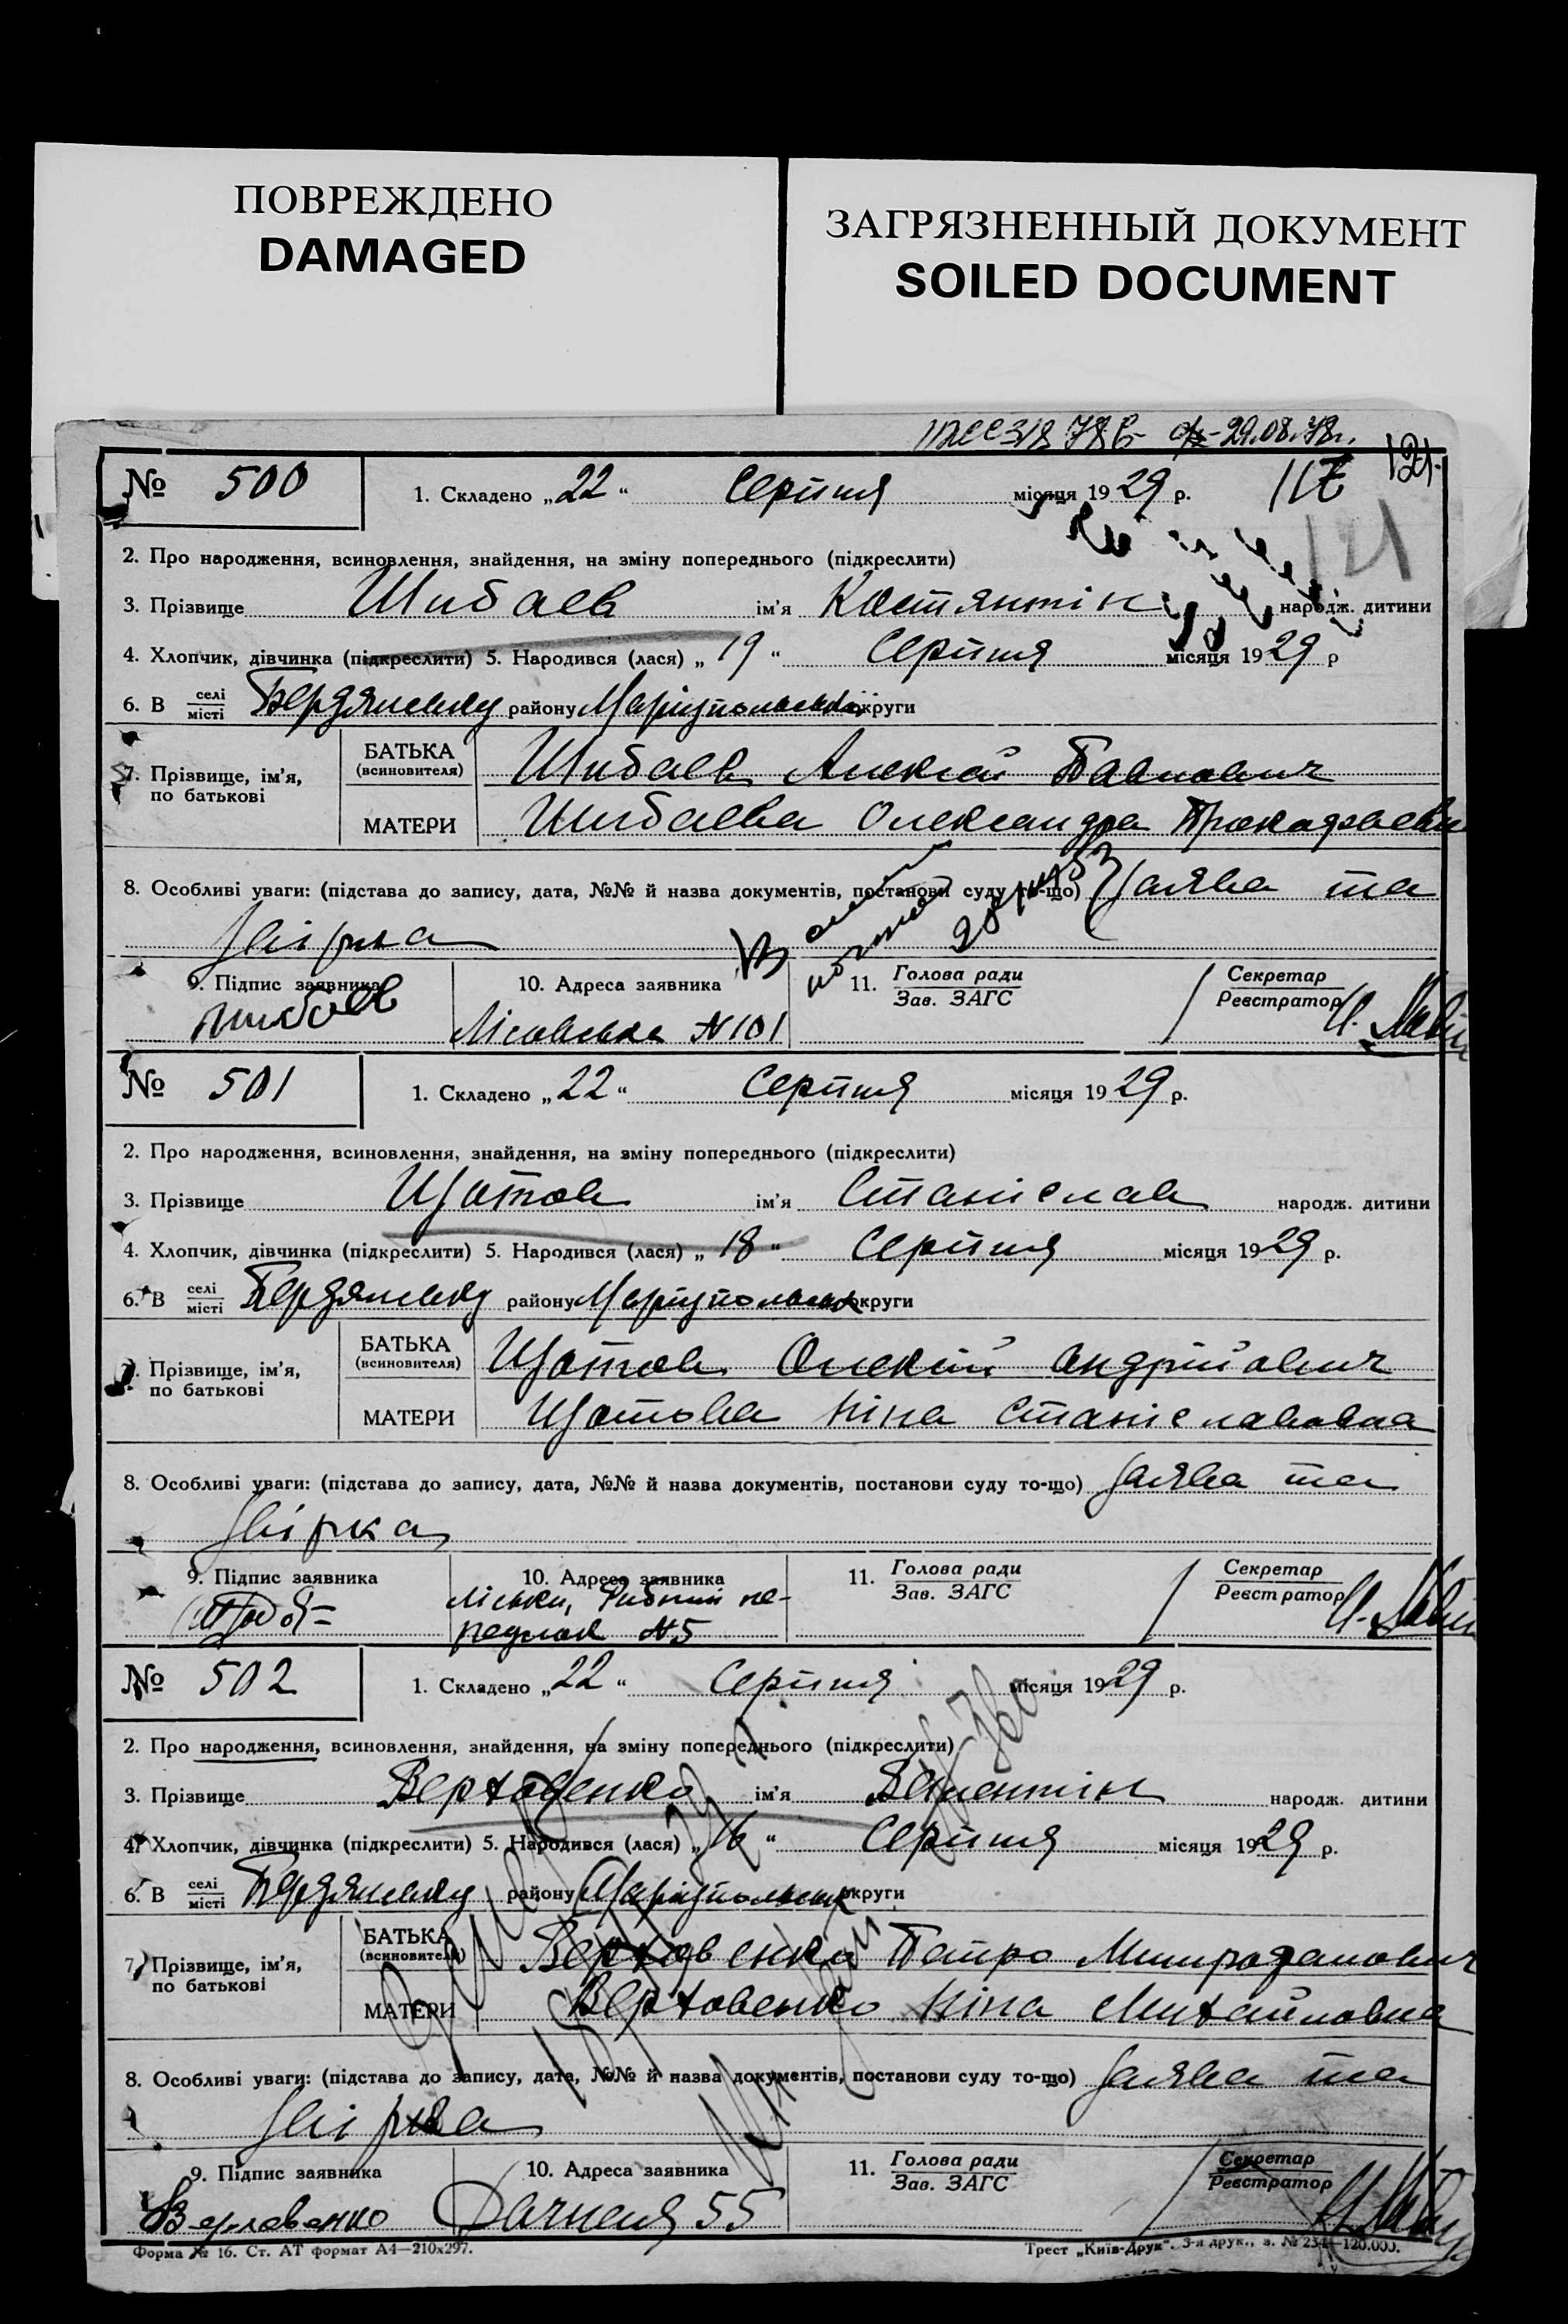 ПОВРЕЖДЕНО
DAMAGED
ЗАГРЯЗНЕННЫЙ ДОКУМЕНТ
SOILED DOCUMENT
29.08.78г.
121
117
121
№ 500 1. Складено „22“ Серпня місяця 1929 р.
2. Про народження, всиновлення, знайдення, на зміну попереднього (підкреслити)
3. Прізвище Шибаев ім'я Костянтін народж. дитини
4. Хлопчик, дівчинка (підкреслити) 5. Народився (лася) „19“ Серпня місяця 1929 р
6. В селі/місті Бердянську району Маріупольської округи
7. Прізвище, ім'я, по батькові
БАТЬКА (всиновителя) Шибаев Алексій Павлович
МАТЕРИ Шибаева Олександра
8. Особливі уваги: (підстава до запису, дата, №№ й назва документів, постанови суду то-що) Заява та
звірка
9. Підпис заявника Шибаев
10. Адреса заявника Лісовська №101
11. Голова ради / Зав. ЗАГС
Секретар / Реєстратор
№ 501 1. Складено „22“ Серпня місяця 1929 р.
2. Про народження, всиновлення, знайдення, на зміну попереднього (підкреслити)
3. Прізвище Щотов ім'я Станіслав народж. дитини
4. Хлопчик, дівчинка (підкреслити) 5. Народився (лася) „18“ Серпня місяця 1929 р.
6. В селі/місті Бердянську району Маріупольськ округи
7. Прізвище, ім'я, по батькові
БАТЬКА (всиновителя) Щотов Олексій Андрійович
МАТЕРИ Щотова Ніна Станіславовна
8. Особливі уваги: (підстава до запису, дата, №№ й назва документів, постанови суду то-що) Заява та
звірка
9. Підпис заявника
10. Адреса заявника Ліськи, Рибний пе-
реулок №5
11. Голова ради / Зав. ЗАГС
Секретар / Реєстратор
№ 502 1. Складено „22“ Серпня місяця 1929 р.
2. Про народження, всиновлення, знайдення, на зміну попереднього (підкреслити)
3. Прізвище Верховенко ім'я Валентін народж. дитини
4. Хлопчик, дівчинка (підкреслити) 5. Народився (лася) „16“ Серпня місяця 1929 р.
6. В селі/місті Бердянську району Маріупольськ округи
7. Прізвище, ім'я, по батькові
БАТЬКА (всиновителя) Верховенко Петро Митрофанович
МАТЕРИ Верховенко Ніна Михайловна
8. Особливі уваги: (підстава до запису, дата, №№ й назва документів, постанови суду то-що) Заява та
звірка
9. Підпис заявника Верховенко
10. Адреса заявника Дачная 55
11. Голова ради / Зав. ЗАГС
Секретар / Реєстратор
Форма № 16. Ст. АТ формат А4—210х297.
Трест „Київ-Друк“. 3-я друк., з. № 234—120.000.